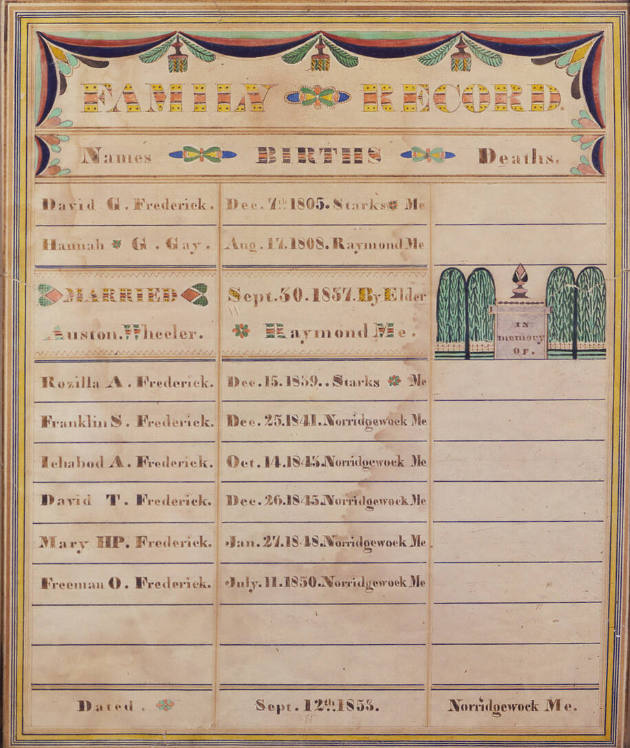 FAMILY RECORD.
Names BIRTHS Deaths.
David G. Frederick. Dec. 7th 1805. Starks Me
Hannah G. Gay. Aug. 17. 1808. Raymond Me
MARRIED Sept. 30. 1837. By Elder
Auston. Wheeler. Raymond Me.
IN
memory
OF.
Rozilla A. Frederick. Dec. 15. 1839. Starks Me
Franklin S. Frederick. Dec. 25. 1841. Norridgewock Me
Ichabod A. Frederick. Oct. 14. 1843. Norridgewock Me
David T. Frederick. Dec. 26. 1845. Norridgewock Me
Mary HP. Frederick. Jan. 27. 1848. Norridgewock Me
Freeman O. Frederick. July. 11. 1850. Norridgewock Me
Dated. Sept. 12th. 1853. Norridgewock Me.